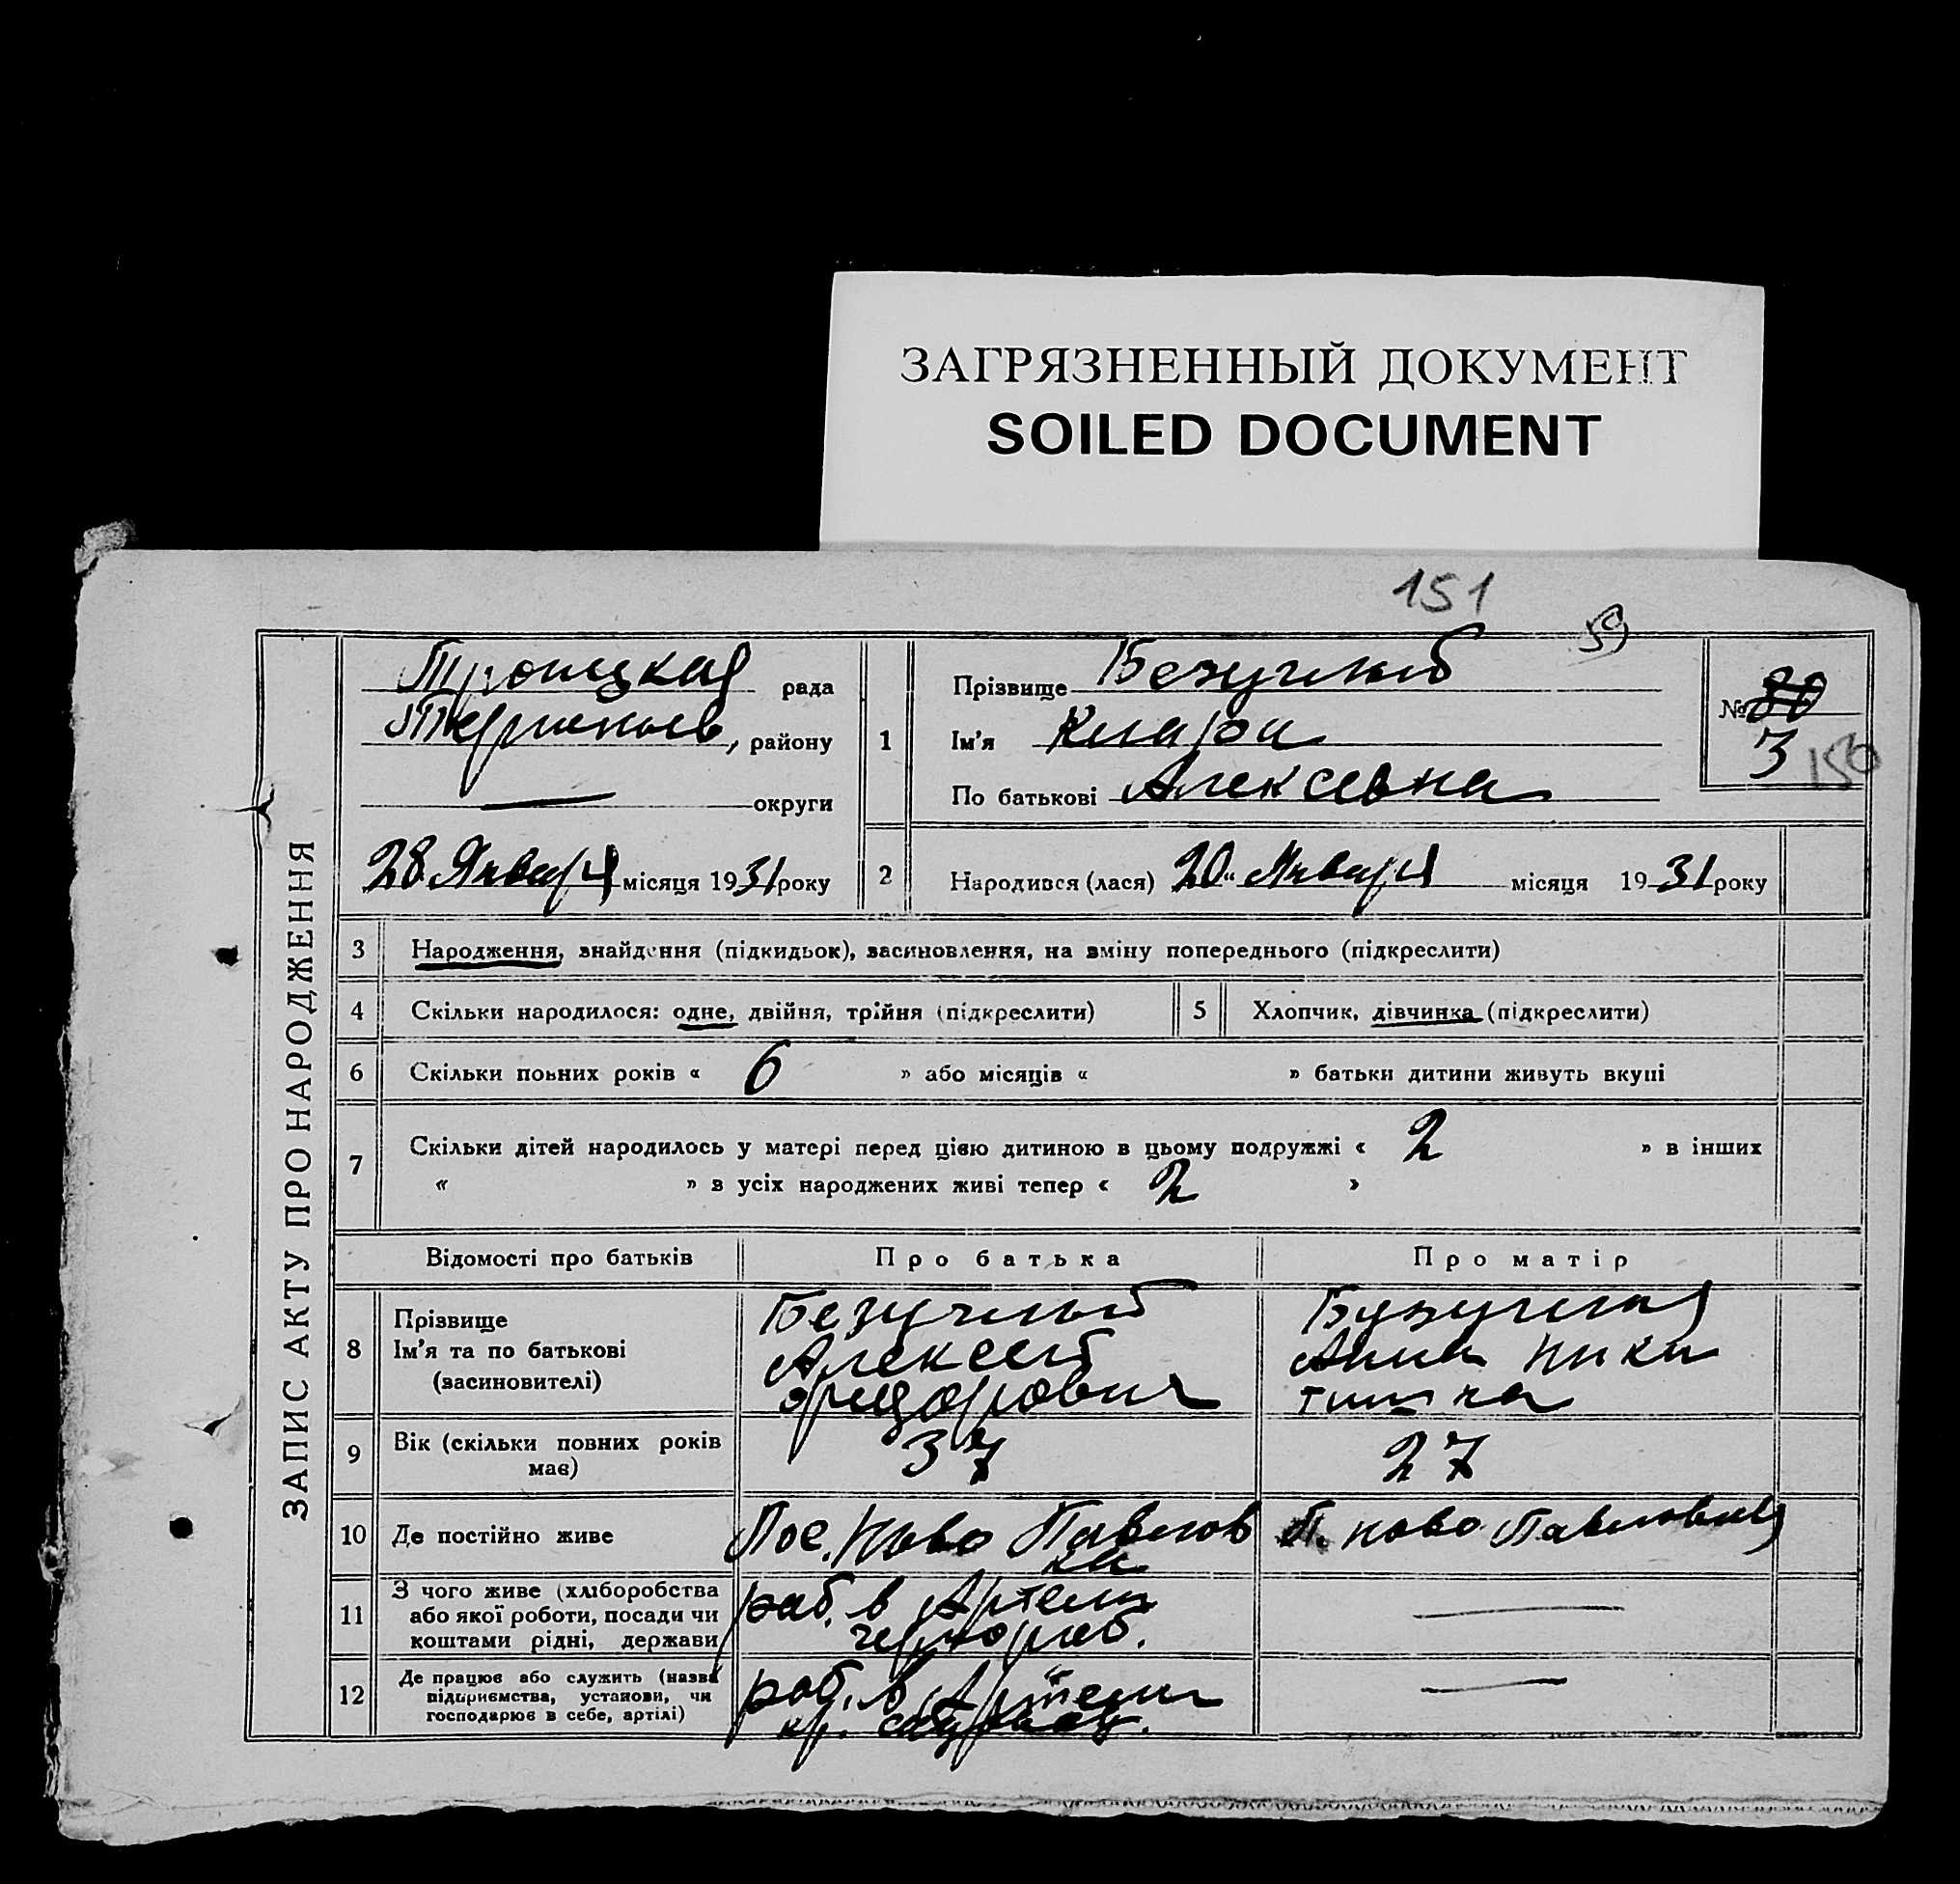 ЗАГРЯЗНЕННЫЙ ДОКУМЕНТ
SOILED DOCUMENT
151
59
ЗАПИС АКТУ ПРО НАРОДЖЕННЯ
Троицкая рада
району
— округи
28 Января місяця 1931 року
1
Прізвище Безуглый
Ім'я Клара
По батькові Алексевна
№ 80
3
150
2 Народився (лася) 20 " Января місяця 1931 року
3 Народження, знайдення (підкидьок), засиновлення, на зміну попереднього (підкреслити)
4 Скільки народилося: одне, двійня, трійня (підкреслити)
5 Хлопчик, дівчинка (підкреслити)
6 Скільки повних років « 6 » або місяців « » батьки дитини живуть вкупі
7 Скільки дітей народилось у матері перед цією дитиною в цьому подружжі « 2 » в інших
« » з усіх народжених живі тепер « 2 »
Відомості про батьків Про батька Про матір
8
Прізвище
Ім'я та по батькові
(засиновителі)
Безуглый
Алексей
Федорович
Анна Ники
тична
9 Вік (скільки повних років
має)
37
27
10 Де постійно живе
Пос. Ново Павлов
ка
П. Ново Павловка
11 З чого живе (хліборобства
або якої роботи, посади чи
коштами рідні, держави
раб. в Артели
чернораб.
—
12 Де працює або служить (назва
підприємства, установи, чи
господарює в себе, артілі)
раб. в Артели
—